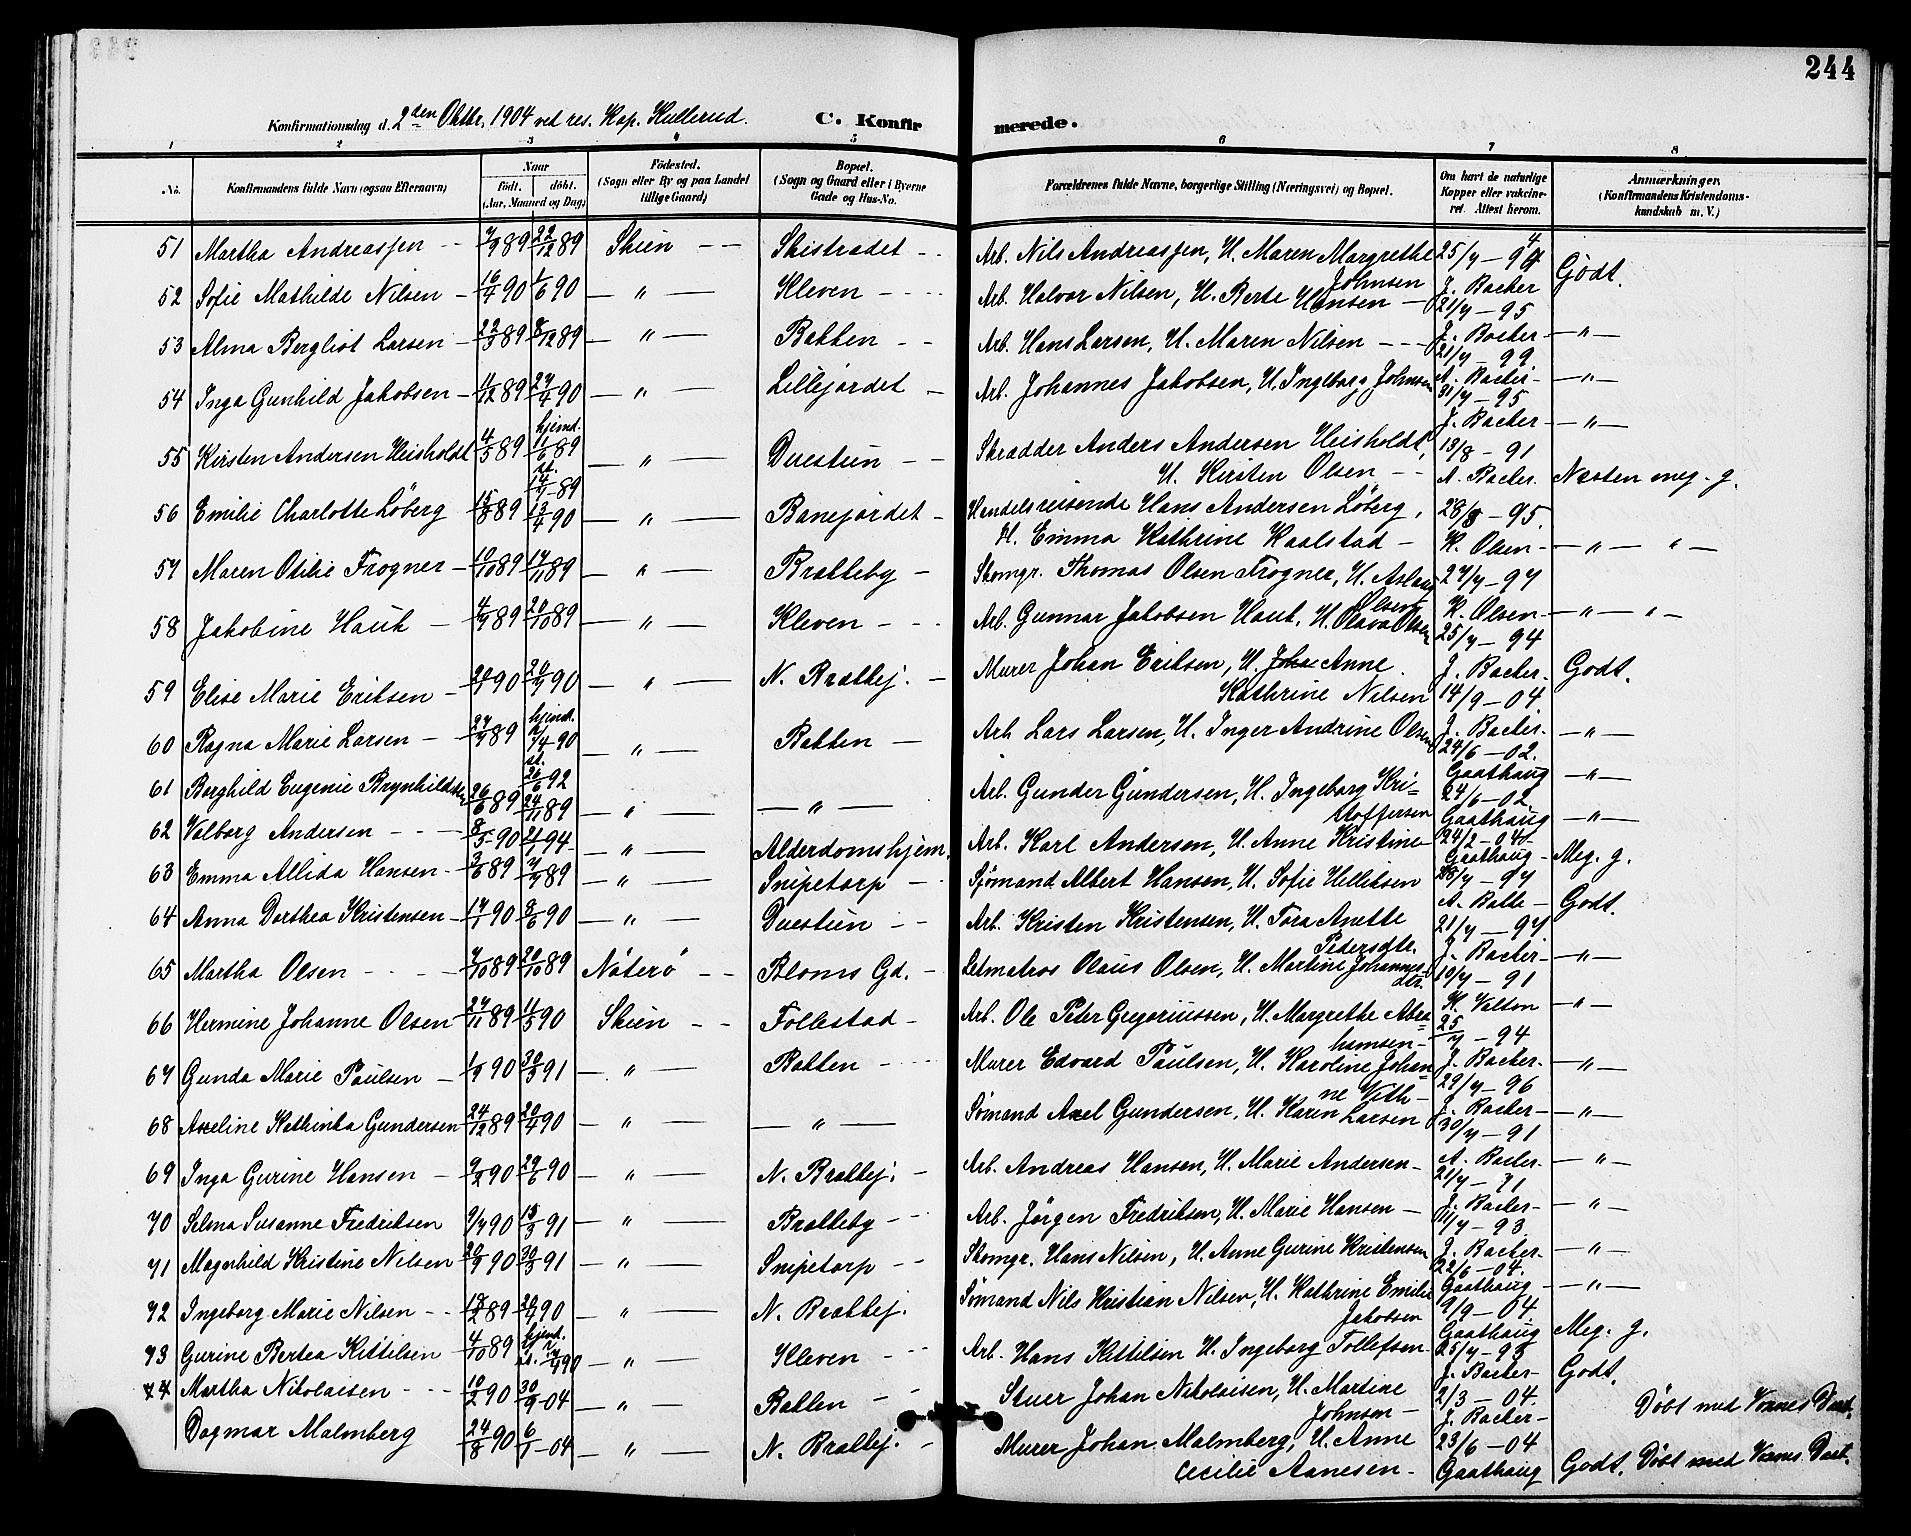 244
Konfirmationsdag d. 2den Oktbr. 1904 ved res. Kap. Kullerud. C. Konfirmerede.
1 2 3 4 5 6 7 8
No. Konfirmandens fulde Navn (ogsaa Efternavn) Naar født. døbt. (Aar, Maaned og Dag) Fødested. (Sogn eller By og paa Landet tillige Gaard) Bopæl. (Sogn og Gaard eller i Byerne Gade og Hus-No. Forældrenes fulde Navne, borgerlige Stilling (Næringsvei) og Bopæl. Om havt de naturlige Kopper eller vaccineret. Attest herom. Anmærkninger. (Konfirmandens Kristendomskundskab m. V.)
51 Martha Andreassen 7/9 89 22/12 89 Skien Skistradet Arb. Nils Andreassen, H. Maren Margrethe Johnsen 25/7 - 94 J. Backer Godt.
52 Sofie Mathilde Nilsen 16/4 90 1/6 90 — " — Kleven Arb. Halvor Nilsen, H. Berte Hansen 21/7 - 95 J. Backer
53 Alma Bergliot Larsen 22/5 89 8/12 89 — " — Bakken Arb. Hans Larsen, H. Maren Nilsen 21/7 - 99 A. Backer — " —
54 Inga Gunhild Jakobsen 11/12 89 27/4 90 — " — Lillejordet Arb. Johannes Jakobsen, H. Ingeborg Johnsen 31/7 - 95 J. Backer — " —
55 Kirsten Andersen Heisholdt 4/5 89 hjemd. 11/6 89 st. 14/7 - 89 — " — Duestien Skrædder Anders Andersen Heisholdt, H. Kirsten Olsen 13/8 - 91 A. Backer Næsten meg. g.
56 Emilie Charlotte Løberg 15/8 89 13/4 90 — " — Banejordet Handelsreisende Hans Andersen Løberg, H. Emma Kathrine Kaalstad 28/8 - 95. K. Olsen — " — " —
57 Maren Otilie Frogner 10/10 89 17/11 89 — " — Bratteby Skomgr. Thomas Olsen Frogner, H. Aslaug Olsen 27/7 - 97 K. Olsen — " — " —
58 Jakobine Hauk 4/9 89 20/10 89 — " — Kleven Arb. Gunnar Jakobsen Hauk, H. Olava Olsen 25/7 - 94 J. Backer Godt.
59 Elise Marie Eriksen 90 90 — " — N. Brattej. Murer Johan Eriksen, H. Anne Kathrine Nilsen 14/9 - 04. J. Backer
60 Ragna Marie Larsen 89 hjemd. 7/4 - 90 st. 26/6 92 — " — Bakken Arb Lars Larsen, H. Inger Andrine Olsen 24/6 - 02. Gaathaug — " —
61 Borghild Eugenie Brynhildsen 26/6 89 24/11 89 — " — — " — Arb. Gunder Gundersen, H. Ingeborg Kristoffersen 24/6 - 02 Gaathaug — " —
62 Valborg Andersen 8/5 - 90 94 — " — Alderdomshjem. Arb. Karl Andersen, H. Anne Kristine 24/2 - 04. Gaathaug Meg. g.
63 Emma Allida Hansen 3/6 89 7/7 89 — " — Snipetorp Sjømand Albert Hansen, H. Sofie Helliksen 28/7 - 97 A. Balle Godt.
64 Anna Dorthea Kristensen 17/1 90 8/6 90 — " — Duestien Arb. Kristen Kristensen, H. Tora Anette Pedersdtr. 21/7 - 97 J. Backer — " —
65 Martha Olsen 7/10 89 20/10 89 Nøterø Bloms Gd. Letmatros Olaus Olsen, H. Martine Johannesdtr. 10/7 - 91 K. Valton — " —
66 Hermine Johanne Olsen 27/11 89 11/5 90 Skien Follestad Arb. Ole Peter Gregoriussen, H. Margrethe Abrahamsen 25/7 - 94 J. Backer
67 Gunda Marie Paulsen 1/9 90 30/3 91 — " — Bakken Murer Edvard Paulsen, H. Karoline Johanne Veth 29/7 - 96 J. Backer — " —
68 Axeline Kathinka Gundersen 24/12 89 20/4 90 — " — — " — Sømand Axel Gundersen, H. Karin Larsen 30/7 - 91 A. Backer — " —
69 Inga Gurine Hansen 9/2 90 29/6 90 — " — N. Brattej. Arb. Andreas Hansen, H. Marie Andersen 21/7 - 91 J. Backer — " —
70 Selma Susanne Fredriksen 9/7 90 15/3 91 — " — Bratteby Arb. Jørgen Fredriksen, H. Marie Hansen 11/7 - 93 J. Backer — " —
71 Magnhild Kristine Nilsen 20/9 90 30/3 91 — " — Snipetorp Skomgr. Hans Nilsen, H. Anne Gurine Kristensen 22/6 - 04. Gaathaug — " —
72 Ingeborg Marie Nilsen 89 90 — " — N. Brattej. Sømand Nils Kristian Nilsen, H. Kathrine Emilie Jakobsen 9/9 - 04 Gaathaug Meg. g.
73 Gurine Bertea Kittilsen 4/10 89 hjemd. st. 90 — " — Kleven Arb. Hans Kittilsen H. Ingeborg Tollefsen 25/7 - 93 J. Backer Godt.
74 Martha Nikolaisen 10/2 90 30/9 - 04 — " — Bakken Stuer Johan Nikolaisen, H. Martine Johnsen 2/3 - 04. J. Backer Døbt med Voxnes Daab.
Dagmar Malmberg 24/8 90 6/1 - 04 — " — N. Brattej. Murer Johan Malmberg, H. Anne Cecilie Aanesen 23/6 - 04 Gaathaug Godt. Døbt med Voxnes Daab.